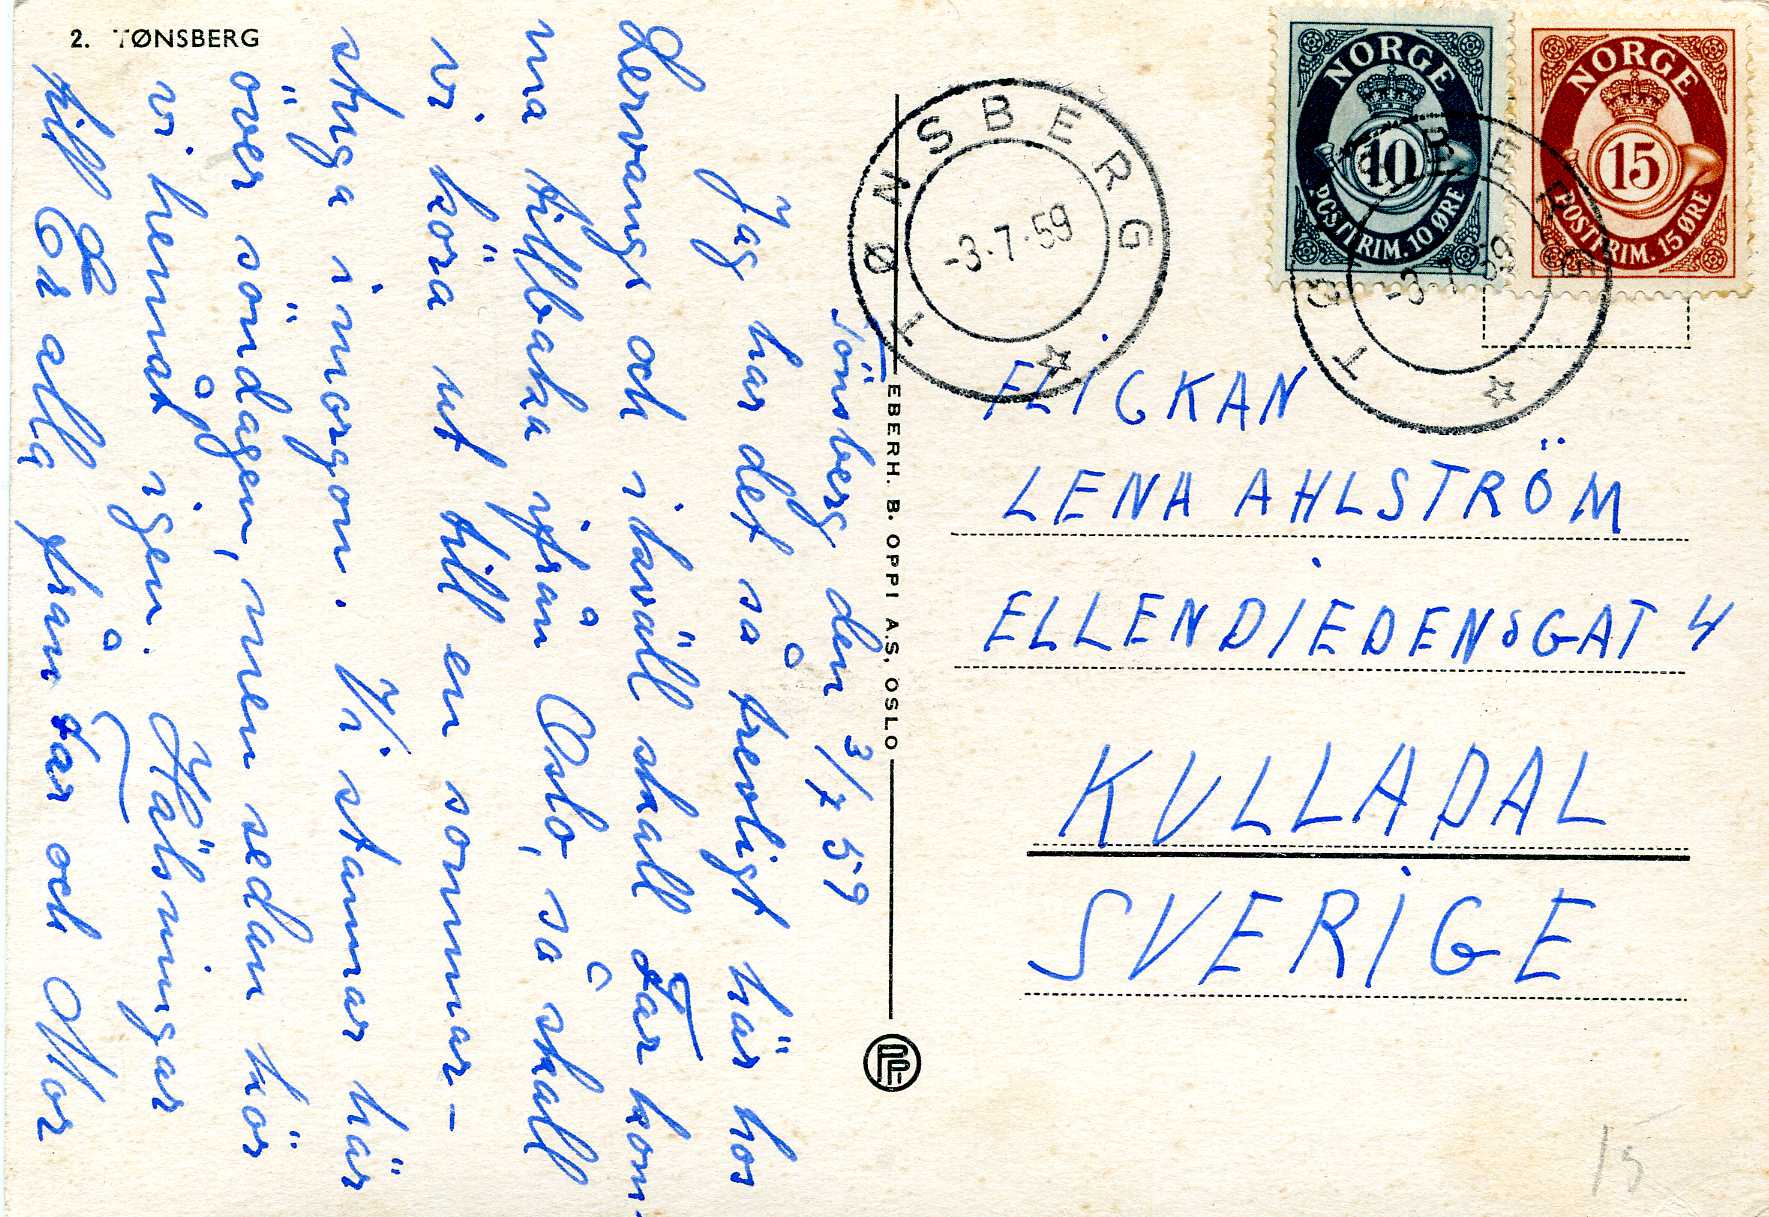 2. TØNSBERG
Tönsberg den 3/7 59
Jag har det så trevligt här hos
Lervangs och i kväll skall Far kom-
ma tillbaka ifrån Oslo, så skall
vi köra ut till en sommar-
stuga i morgon. Vi stannar här
över söndagen, men sedan kör
vi hemåt igen. Hälsningar
till Er alla från Far och Mor
EBERH. B. OPPI A.S. OSLO
PP
NORGE
10
POSTFRIM. 10 ØRE
NORGE
15
POSTFRIM. 15 ØRE
TØNSBERG
-3.7.59
TØNSBERG
-3.7.59
FLICKAN
LENA AHLSTRÖM
ELLENDIEDENSGAT 4
KULLADAL
SVERIGE
15